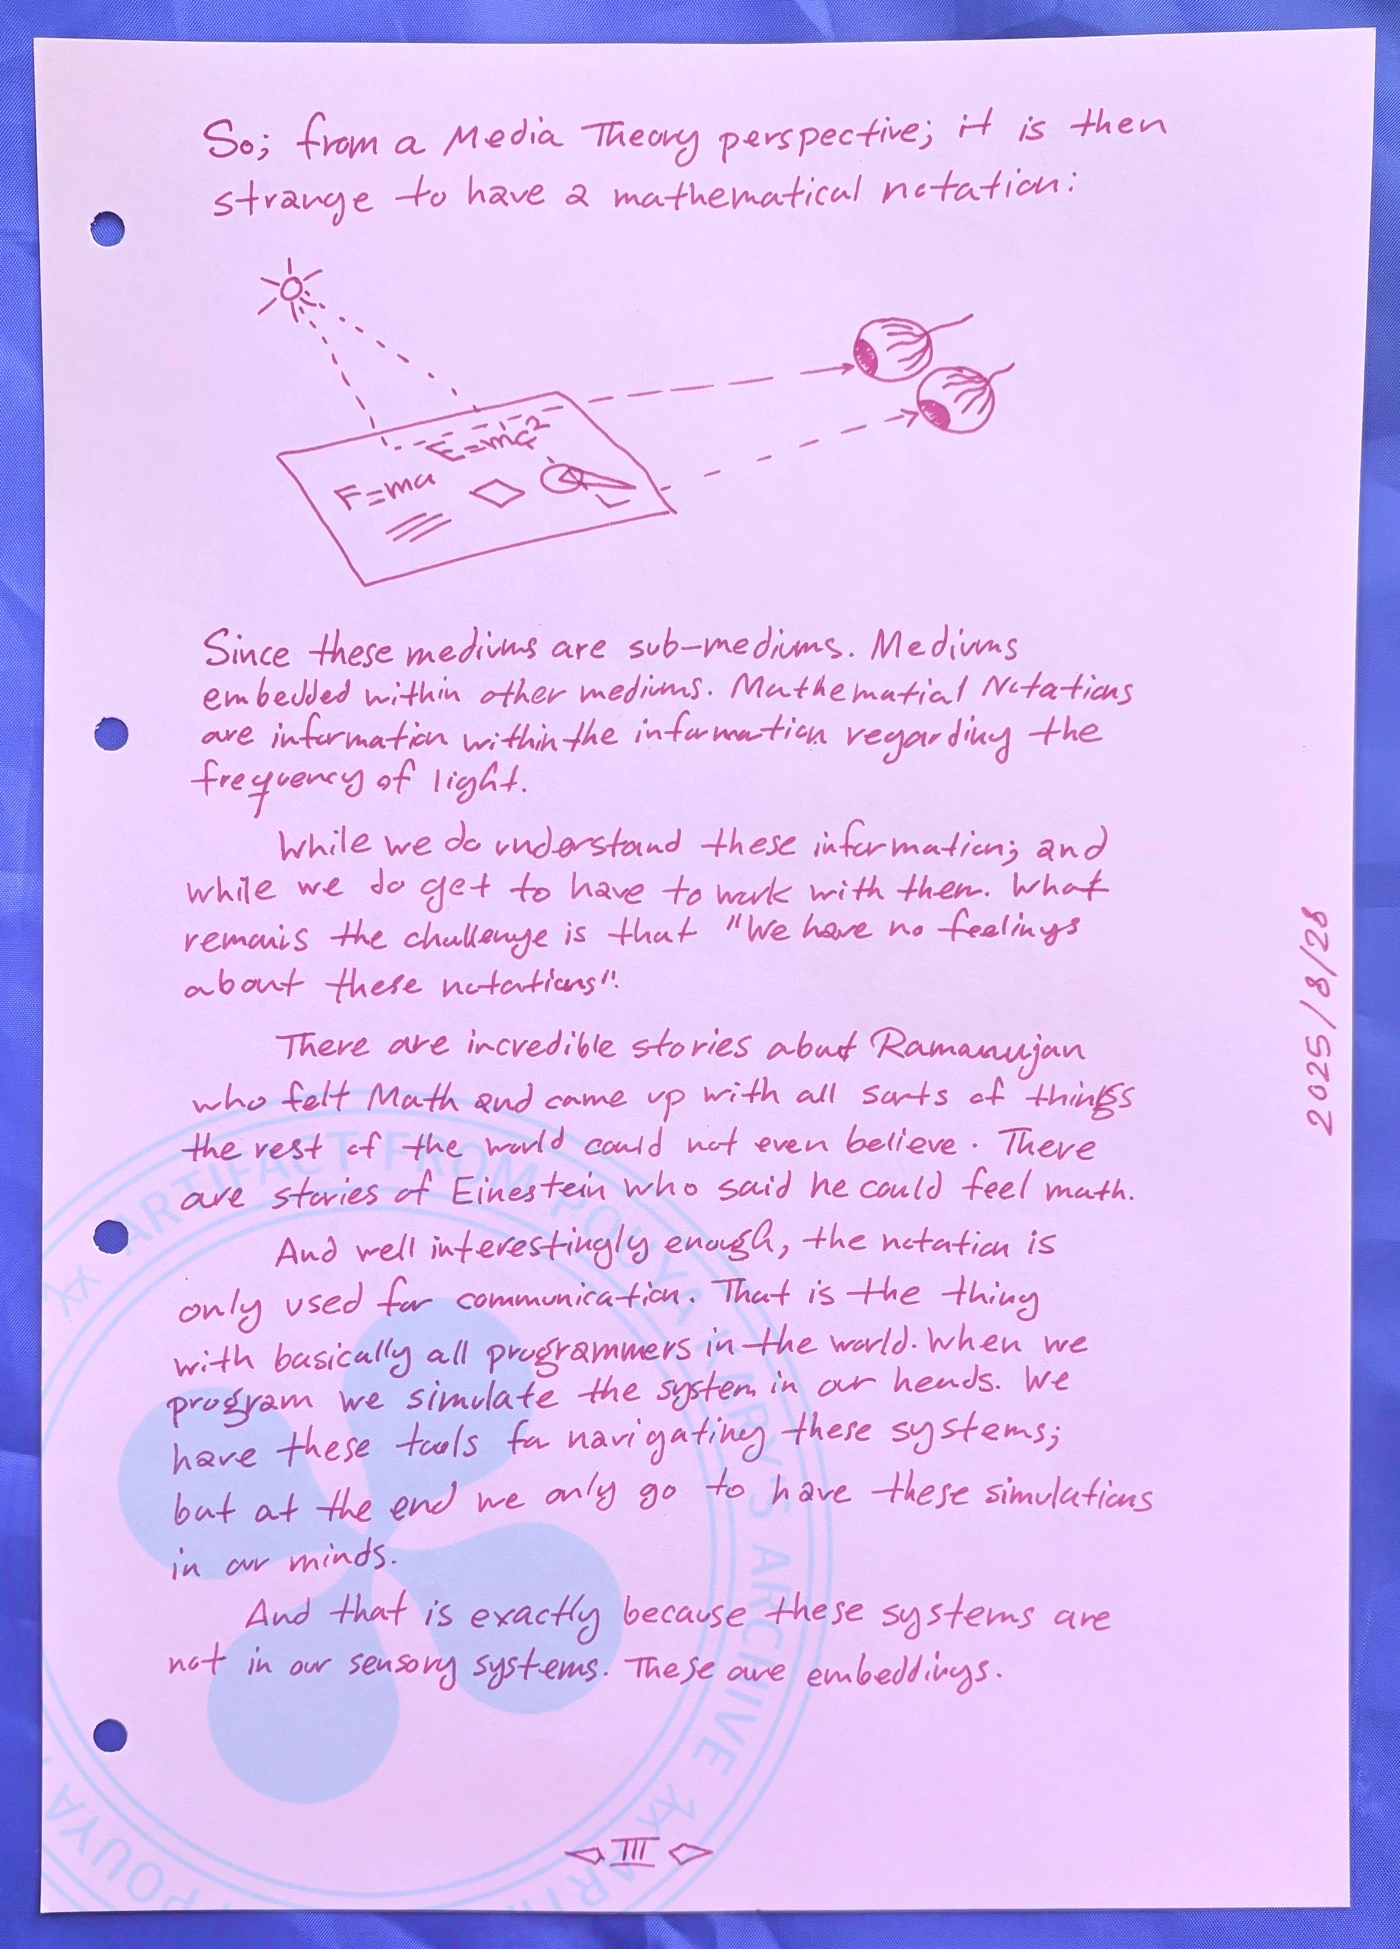 So; from a Media Theory perspective; it is then
strange to have a mathematical notation:
E=mc²
F=ma
Since these mediums are sub-mediums. Mediums
embedded within other mediums. Mathematial Notations
are information within the information regarding the
frequency of light.
While we do understand these information; and
while we do get to have to work with them. What
remais the challenge is that "We have no feelings
about these notations".
There are incredible stories about Ramanujan
who felt Math and came up with all sorts of things
the rest of the world could not even believe. There
are stories of Einestein who said he could feel math.
And well interestingly enough, the notation is
only used for communication. That is the thing
with basically all programmers in the world. When we
program we simulate the system in our heads. We
have these tools for navigating these systems;
but at the end we only go to have these simulations
in our minds.
And that is exactly because these systems are
not in our sensory systems. These are embeddings.
III
2025/8/28
ARTIFACT FROM POUYA
ARCHIVE